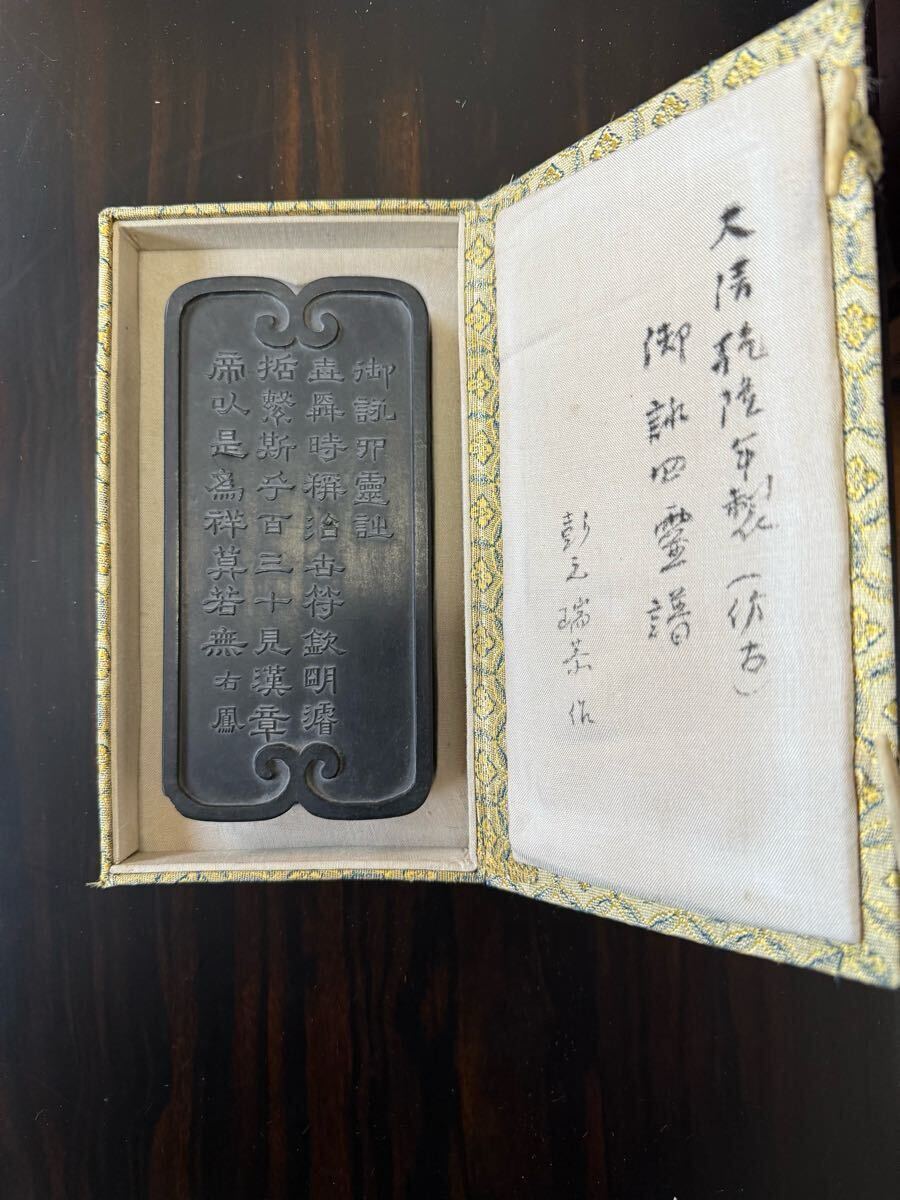 大清乾隆年製（仿古）
御詠四靈譜
彭元瑞恭作
御詠四靈詩
時稱治古符欽明濬
哲繫斯乎百三十見漢章
帝以是為祥莫若無 右鳳